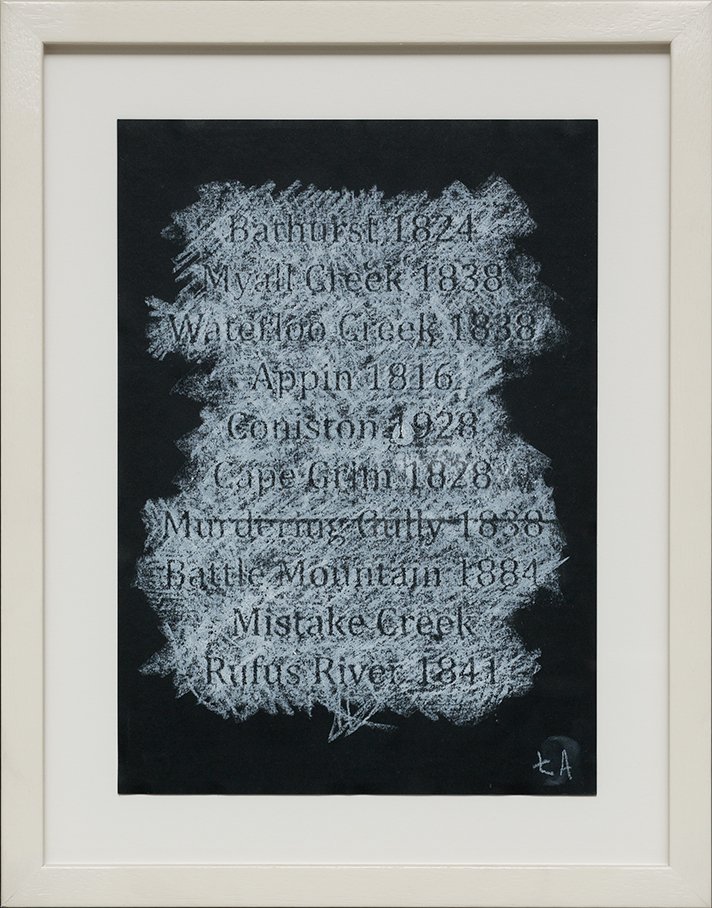 Bathurst 1824
Myall Creek 1838
Waterloo Creek 1838
Appin 1816
Coniston 1928
Cape Grim 1828
Murdering Gully 1838
Battle Mountain 1884
Mistake Creek
Rufus River 1841
tA